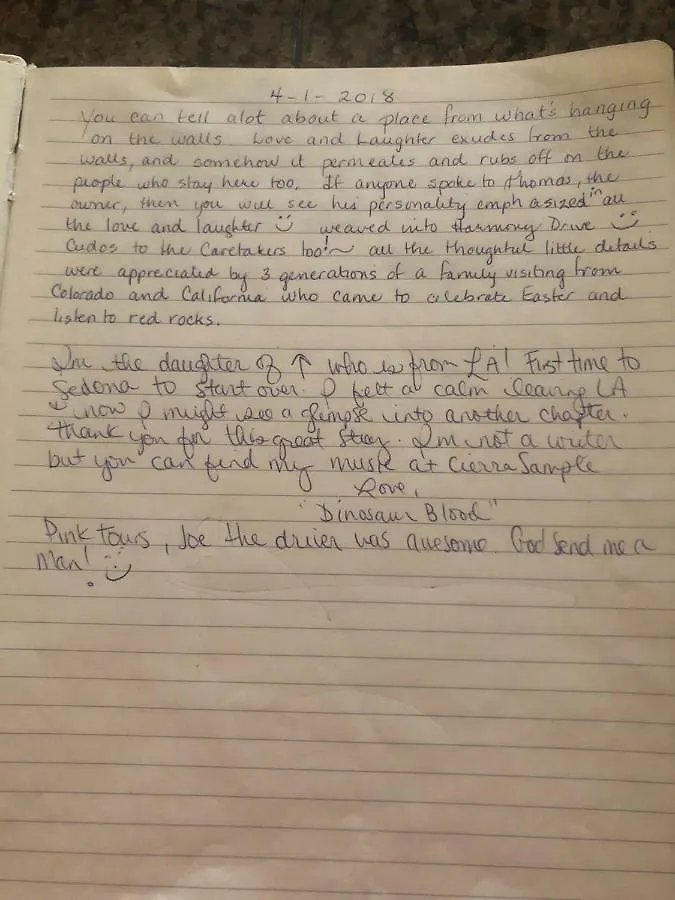 4-1-2018
You can tell alot about a place from what's hanging
on the walls. Love and Laughter exudes from the
walls, and somehow it permeates and rubs off on the
people who stay here too. If anyone spoke to Thomas, the
owner, then you will see his personality emphasized in all
the love and laughter :) weaved into Harmony Drive :)
Cudos to the Caretakers too!~ all the thoughtful little details
were appreciated by 3 generations of a family visiting from
Colorado and California who came to celebrate Easter and
listen to red rocks.
Im the daughter of ↑ who is from LA! First time to
Sedona to start over. I felt a calm leaving LA
now I might see a glimpse into another chapter.
thank you for this great stay. Im not a writer
but you can find my music at Cierra Sample
Love,
"Dinosaur Blood"
Pink Tours, Joe the driver was awesome. God send me a
Man! :)